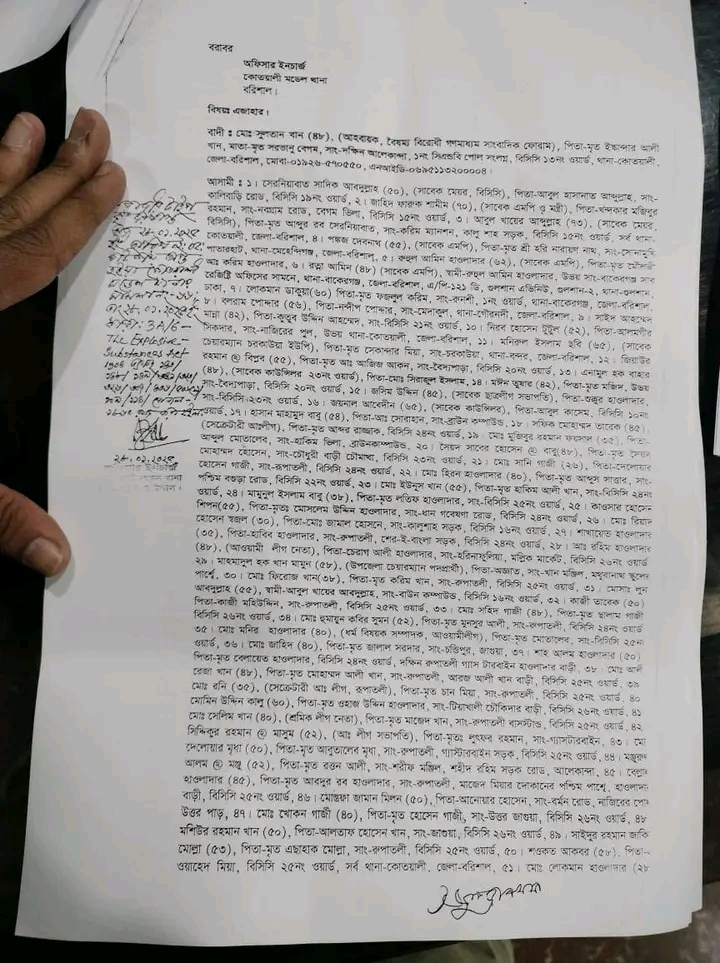 বরাবর
অফিসার ইনচার্জ
কোতয়ালী মডেল থানা
বরিশাল।
বিষয়ঃ এজাহার।
বাদী : মোঃ সুলতান খান (৪৮), (আহবায়ক, বৈষম্য বিরোধী গণমাধ্যম সাংবাদিক ফোরাম), পিতা-মৃত ইস্কান্দার আলী
খান, মাতা-মৃত সরভানু বেগম, সাং-দক্ষিন আলেকান্দা, ১নং সিএন্ডবি পোল সংলগ্ন, বিসিসি ১৩নং ওয়ার্ড, থানা-কোতয়ালী,
জেলা-বরিশাল, মোবা-০১৯২৬-৫৭০৫৫০, এনআইডি-০৬৯৫১১৩২০০০০৪।
আসামী : ১। সেরনিয়াবাত সাদিক আবদুল্লাহ (৫০), (সাবেক মেয়র, বিসিসি), পিতা-আবুল হাসানাত আব্দুল্লাহ, সাং-
কালিবাড়ি রোড, বিসিসি ১৯নং ওয়ার্ড, ২। জাহিদ ফারুক শামীম (৭০), (সাবেক এমপি ও মন্ত্রী), পিতা-খন্দকার মজিবুর
রহমান, সাং-নবগ্রাম রোড, বেগম ভিলা, বিসিসি ১৫নং ওয়ার্ড, ৩। আবুল খায়ের আব্দুল্লাহ (৭৩), (সাবেক মেয়র,
বিসিসি), পিতা-মৃত আব্দুর রব সেরনিয়াবাত, সাং-করিম ম্যানশন, কালু শাহ সড়ক, বিসিসি ১৫নং ওয়ার্ড, সর্ব থানা-
কোতয়ালী, জেলা-বরিশাল, ৪। পঙ্কজ দেবনাথ (৫৫), (সাবেক এমপি), পিতা-মৃত শ্রী হরি নারায়ণ নাথ, সাং-সোনামুখি
পাতারহাট, থানা-মেহেন্দিগঞ্জ, জেলা-বরিশাল, ৫। রুহুল আমিন হাওলাদার (৬২), (সাবেক এমপি), পিতা-মৃত মৌলভী
আঃ করিম হাওলাদার, ৬। রত্না আমিন (৪৮) (সাবেক এমপি), স্বামী-রুহুল আমিন হাওলাদার, উভয় সাং-বাকেরগঞ্জ সাব
রেজিষ্ট্রি অফিসের সামনে, থানা-বাকেরগঞ্জ, জেলা-বরিশাল, এ/পি-১২১ ডি, গুলশান এভিনিউ, গুলশান-২, থানা-গুলশান,
ঢাকা, ৭। লোকমান ডাকুয়া(৬০) পিতা-মৃত ফজলুল করিম, সাং-রুনশী, ১নং ওয়ার্ড, থানা-বাকেরগঞ্জ, জেলা-বরিশাল,
৮। বলরাম পোদ্দার (৫৬), পিতা-নন্দীপ পোদ্দার, সাং-মেদাকুল, থানা-গৌরনদী, জেলা-বরিশাল, ৯। সাইদ আহম্মেদ
মান্না (৪২), পিতা-কুতুব উদ্দিন আহম্মেদ, সাং-বিসিসি ২১নং ওয়ার্ড, ১০। নিরব হোসেন টুটুল (৫২), পিতা-আলমগীর
সিকদার, সাং-নাজিরের পুল, উভয় থানা-কোতয়ালী, জেলা-বরিশাল, ১১। মনিরুল ইসলাম ছবি (৬৫), (সাবেক
চেয়ারম্যান চরকাউয়া ইউপি), পিতা-মৃত সেকান্দার মিয়া, সাং-চরকাউয়া, থানা-বন্দর, জেলা-বরিশাল, ১২। জিয়াউর
রহমান @ বিপ্লব (৫৫), পিতা-মৃত আঃ আজিজ আকন, সাং-বৈদ্যপাড়া, বিসিসি ২০নং ওয়ার্ড, ১৩। এনামুল হক বাহার
(৪৮), (সাবেক কাউন্সিলর ২৩নং ওয়ার্ড), পিতা-মোঃ সিরাজুল ইসলাম, ১৪। মঈন তুষার (৪২), পিতা-মৃত মজিদ, উভয়
সাং-বৈদ্যপাড়া, বিসিসি ২০নং ওয়ার্ড, ১৫। জসিম উদ্দীন (৪৫), (সাবেক ছাত্রলীগ সভাপতি), পিতা-গুজুর হাওলাদার,
সাং-বিসিসি-২৩নং ওয়ার্ড, ১৬। জয়নাল আবেদীন (৬৫), (সাবেক কাউন্সিলর), পিতা-আবুল কাসেম, বিসিসি ১০নং
ওয়ার্ড, ১৭। হাসান মাহামুদ বাবু (৫৪), পিতা-আঃ সোবাহান, সাং-ব্রাউন কম্পাউন্ড, ১৮। সফিক মোহাম্মদ তারেক (৪৫),
(সেক্রেটারী আঃলীগ), পিতা-মৃত আব্দুর রাজ্জাক, বিসিসি ২৪নং ওয়ার্ড, ১৯। মোঃ মুজিবুর রহমান ফয়সাল (৩৫), পিতা-
আব্দুল মোতালেব, সাং-হাকিম ভিলা, ব্রাউনকাম্পাউন্ড, ২০। সৈয়দ সাবের হোসেন @ বাবু(৪৮), পিতা-মৃত সৈয়দ
মোহাম্মদ হোসেন, সাং-চৌধুরী বাড়ী চৌমাথা, বিসিসি ২৩নং ওয়ার্ড, ২১। মোঃ সানি গাজী (২৬), পিতা-দেলোয়ার
হোসেন গাজী, সাং-রূপাতলী, বিসিসি ২৪নং ওয়ার্ড, ২২। মোঃ হিরন হাওলাদার (৪০), পিতা-আব্দুস সাত্তার, সাং-
পশ্চিম বগুড়া রোড, বিসিসি ২২নং ওয়ার্ড, ২৩। মোঃ ইউনুস খান (৫৫), পিতা-মৃত হাকিম আলী খান, সাং-বিসিসি ২৪নং
ওয়ার্ড, ২৪। মামুনুল ইসলাম বাবু (৩৮), পিতা-মৃত লতিফ হাওলাদার, সাং-বিসিসি ২৫নং ওয়ার্ড, ২৫। কাওসার হোসেন
শিপন(৫৫), পিতা-মৃতঃ মোসলেম উদ্দিন হাওলাদার, সাং-ধান গবেষণা রোড, বিসিসি ২৪নং ওয়ার্ড, ২৬। মোঃ রিয়াদ
হোসেন স্বজল (৩০), পিতা-মোঃ জামাল হোসেন, সাং-কালুশাহ সড়ক, বিসিসি ১৬নং ওয়ার্ড, ২৭। শাখায়েত হাওলাদার
(৩৫), পিতা-হাবিব হাওলাদার, সাং-রুপাতলী, শের-ই-বাংলা সড়ক, বিসিসি ২৪নং ওয়ার্ড, ২৮। আঃ রহিম হাওলাদার
(৪৮), (আওয়ামী লিগ নেতা), পিতা-চেরাগ আলী হাওলাদার, সাং-হরিনাফুলিয়া, মল্লিক মার্কেট, বিসিসি ২৬নং ওয়ার্ড
২৯। মাহমাসুল হক খান মামুন (৫৮), (উপজেলা চেয়ারম্যান পদপ্রার্থী), পিতা-অজ্ঞাত, সাং-খান মঞ্জিল, মথুরানাথ স্কুলের
পার্শ্বে, ৩০। মোঃ ফিরোজ খান(৩৮), পিতা-মৃত করিম খান, সাং-রুপাতলী, বিসিসি ২৫নং ওয়ার্ড, ৩১। মোসাঃ লুনা
আবদুল্লাহ (৫৫), স্বামী-আবুল খায়ের আবদুল্লাহ, সাং-বাউন কম্পাউন্ড, বিসিসি ১৬নং ওয়ার্ড, ৩২। কাজী তারেক (৫০)
পিতা-কাজী মহিউদ্দিন, সাং-রুপাতলী, বিসিসি ২৫নং ওয়ার্ড, ৩৩। মোঃ সহিদ গাজী (৪৮), পিতা-মৃত ছালাম গাজী
বিসিসি ২৬নং ওয়ার্ড, ৩৪। মোঃ হুমায়ুন কবির সুমন (৫২), পিতা-মৃত মুনসুর আলী, সাং-রুপাতলী, বিসিসি ২৪নং ওয়ার্ড
৩৫। মোঃ মনির হাওলাদার (৪০), (ধর্ম বিষয়ক সম্পাদক, আওয়ামীলীগ), পিতা-মৃত মোতালেব, সাং-বিসিসি ২৫নং
ওয়ার্ড, ৩৬। মোঃ জাহিদ (৪০), পিতা-মৃত জালাল সরদার, সাং-চন্ডিপুর, জাগুয়া, ৩৭। শাহ আলম হাওলাদার (৫০)
পিতা-মৃত বেলায়েত হাওলাদার, বিসিসি ২৪নং ওয়ার্ড, দক্ষিন রুপাতলী গ্যাস টারবাইন হাওলাদার বাড়ী, ৩৮। মোঃ আলী
রেজা খান (৪৮), পিতা-মৃত মোহাম্মদ আলী খান, সাং-রুপাতলী, আরজ আলী খান বাড়ী, বিসিসি ২৫নং ওয়ার্ড, ৩৯
মোঃ রনি (৩৫), (সেক্রেটারী আঃ লীগ, রূপাতলী), পিতা-মৃত চান মিয়া, সাং-রুপাতলী, বিসিসি ২৫নং ওয়ার্ড, ৪০
মোমিন উদ্দিন কালু (৬০), পিতা-মৃত ওহাজ উদ্দিন হাওলাদার, সাং-টিয়াখালী চৌকিদার বাড়ী, বিসিসি ২৬নং ওয়ার্ড, ৪১
মোঃ সেলিম খান (৪০), (শ্রমিক লীগ নেতা), পিতা-মৃত মাজেদ খান, সাং-রুপাতলী বাসস্টান্ড, বিসিসি ২৫নং ওয়ার্ড, ৪২
সিদ্দিকুর রহমান @ মাসুম (৫২), (আঃ লীগ সভাপতি), পিতা-মৃতঃ লুৎফর রহমান, সাং-গ্যাসটারবাইন, ৪৩। মোঃ
দেলোয়ার মৃধা (৫০), পিতা-মৃত আবুতালেব মৃধা, সাং-রুপাতলী, গ্যাস্টারবাইন সড়ক, বিসিসি ২৫নং ওয়ার্ড, ৪৪। মঞ্জুরুল
আলম @ মঞ্জু (৫২), পিতা-মৃত রত্তন আলী, সাং-শরীফ মঞ্জিল, শহীদ রহিম সড়ক রোড, আলেকান্দা, ৪৫। বেল্লাল
হাওলাদার (৪৫), পিতা-মৃত আবদুর রব হাওলাদার, সাং-রুপাতলী, মাজেদ মিয়ার দোকানের পশ্চিম পাশ্বে, হাওলাদার
বাড়ী, বিসিসি ২৫নং ওয়ার্ড, ৪৬। মোস্তফা জামান মিলন (৫০), পিতা-আনোয়ার হোসেন, সাং-বর্মন রোড, নাজিরের পোল
উত্তর পাড়, ৪৭। মোঃ খোকন গাজী (৪০), পিতা-মৃত হোসেন গাজী, সাং-উত্তর জাগুয়া, বিসিসি ২৬নং ওয়ার্ড, ৪৮
মশিউর রহমান খান (৫০), পিতা-আলতাফ হোসেন খান, সাং-জাগুয়া, বিসিসি ২৬নং ওয়ার্ড, ৪৯। সাইদুর রহমান জাকি
মোল্লা (৫৩), পিতা-মৃত এছাহাক মোল্লা, সাং-রুপাতলী, বিসিসি ২৫নং ওয়ার্ড, ৫০। শওকত আকবর (৫৮), পিতা-
ওয়াহেদ মিয়া, বিসিসি ২৫নং ওয়ার্ড, সর্ব থানা-কোতয়ালী, জেলা-বরিশাল, ৫১। মোঃ লোকমান হাওলাদার (২৮
3A/6-
The Explosive-
Substances Act
1908